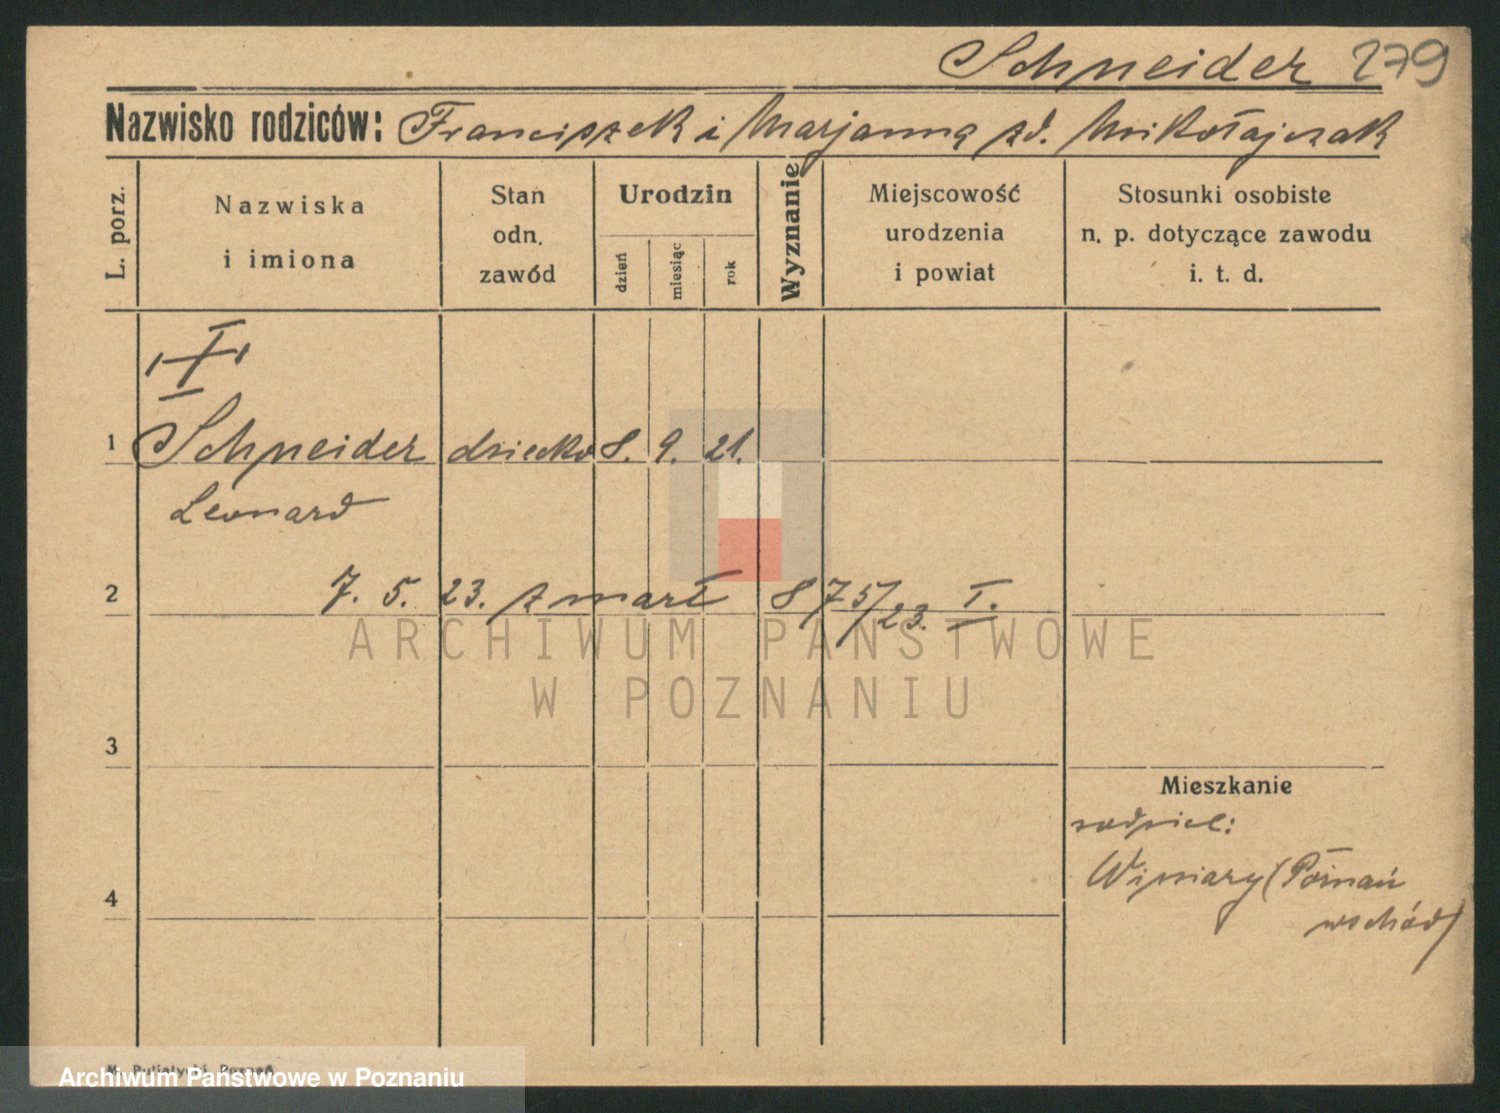 Schneider 279
Nazwisko rodziców: Franciszek i Marjanna zd. Mikołajczak
L. porz.
Nazwiska
i imiona
Stan
odn.
zawód
Urodzin
dzień
miesiąc
rok
Wyznanie
Miejscowość
urodzenia
i powiat
Stosunki osobiste
n. p. dotyczące zawodu
i. t. d.
1 Schneider dziecko 8. 9. 21.
Leonard
2 7. 5. 23. zmarł 875/23. I.
ARCHIWUM PAŃSTWOWE
W POZNANIU
3
Mieszkanie
rodziców:
4 Winiary (Poznań
wschód)
Archiwum Państwowe w Poznaniu